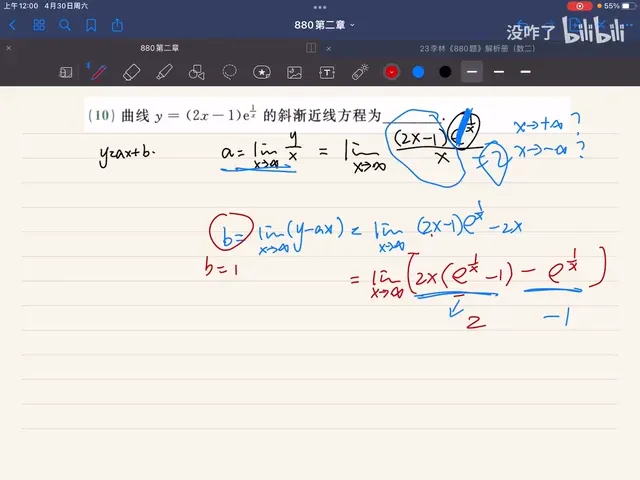 上午12:00 4月30日周六
55%
880第二章
没咋了 bilibili
880第二章
23李林《880题》解析册（数二）
(10) 曲线 y=(2x-1)e^{1/x} 的斜渐近线方程为______.
x→+∞ ?
x→-∞ ?
y=ax+b. a = lim_{x→∞} y/x = lim_{x→∞} (2x-1)e^{1/x}/x = 2
b = lim_{x→∞} (y-ax) = lim_{x→∞} (2x-1)e^{1/x} - 2x
b=1 = lim_{x→∞} (2x(e^{1/x}-1) - e^{1/x})
2 -1